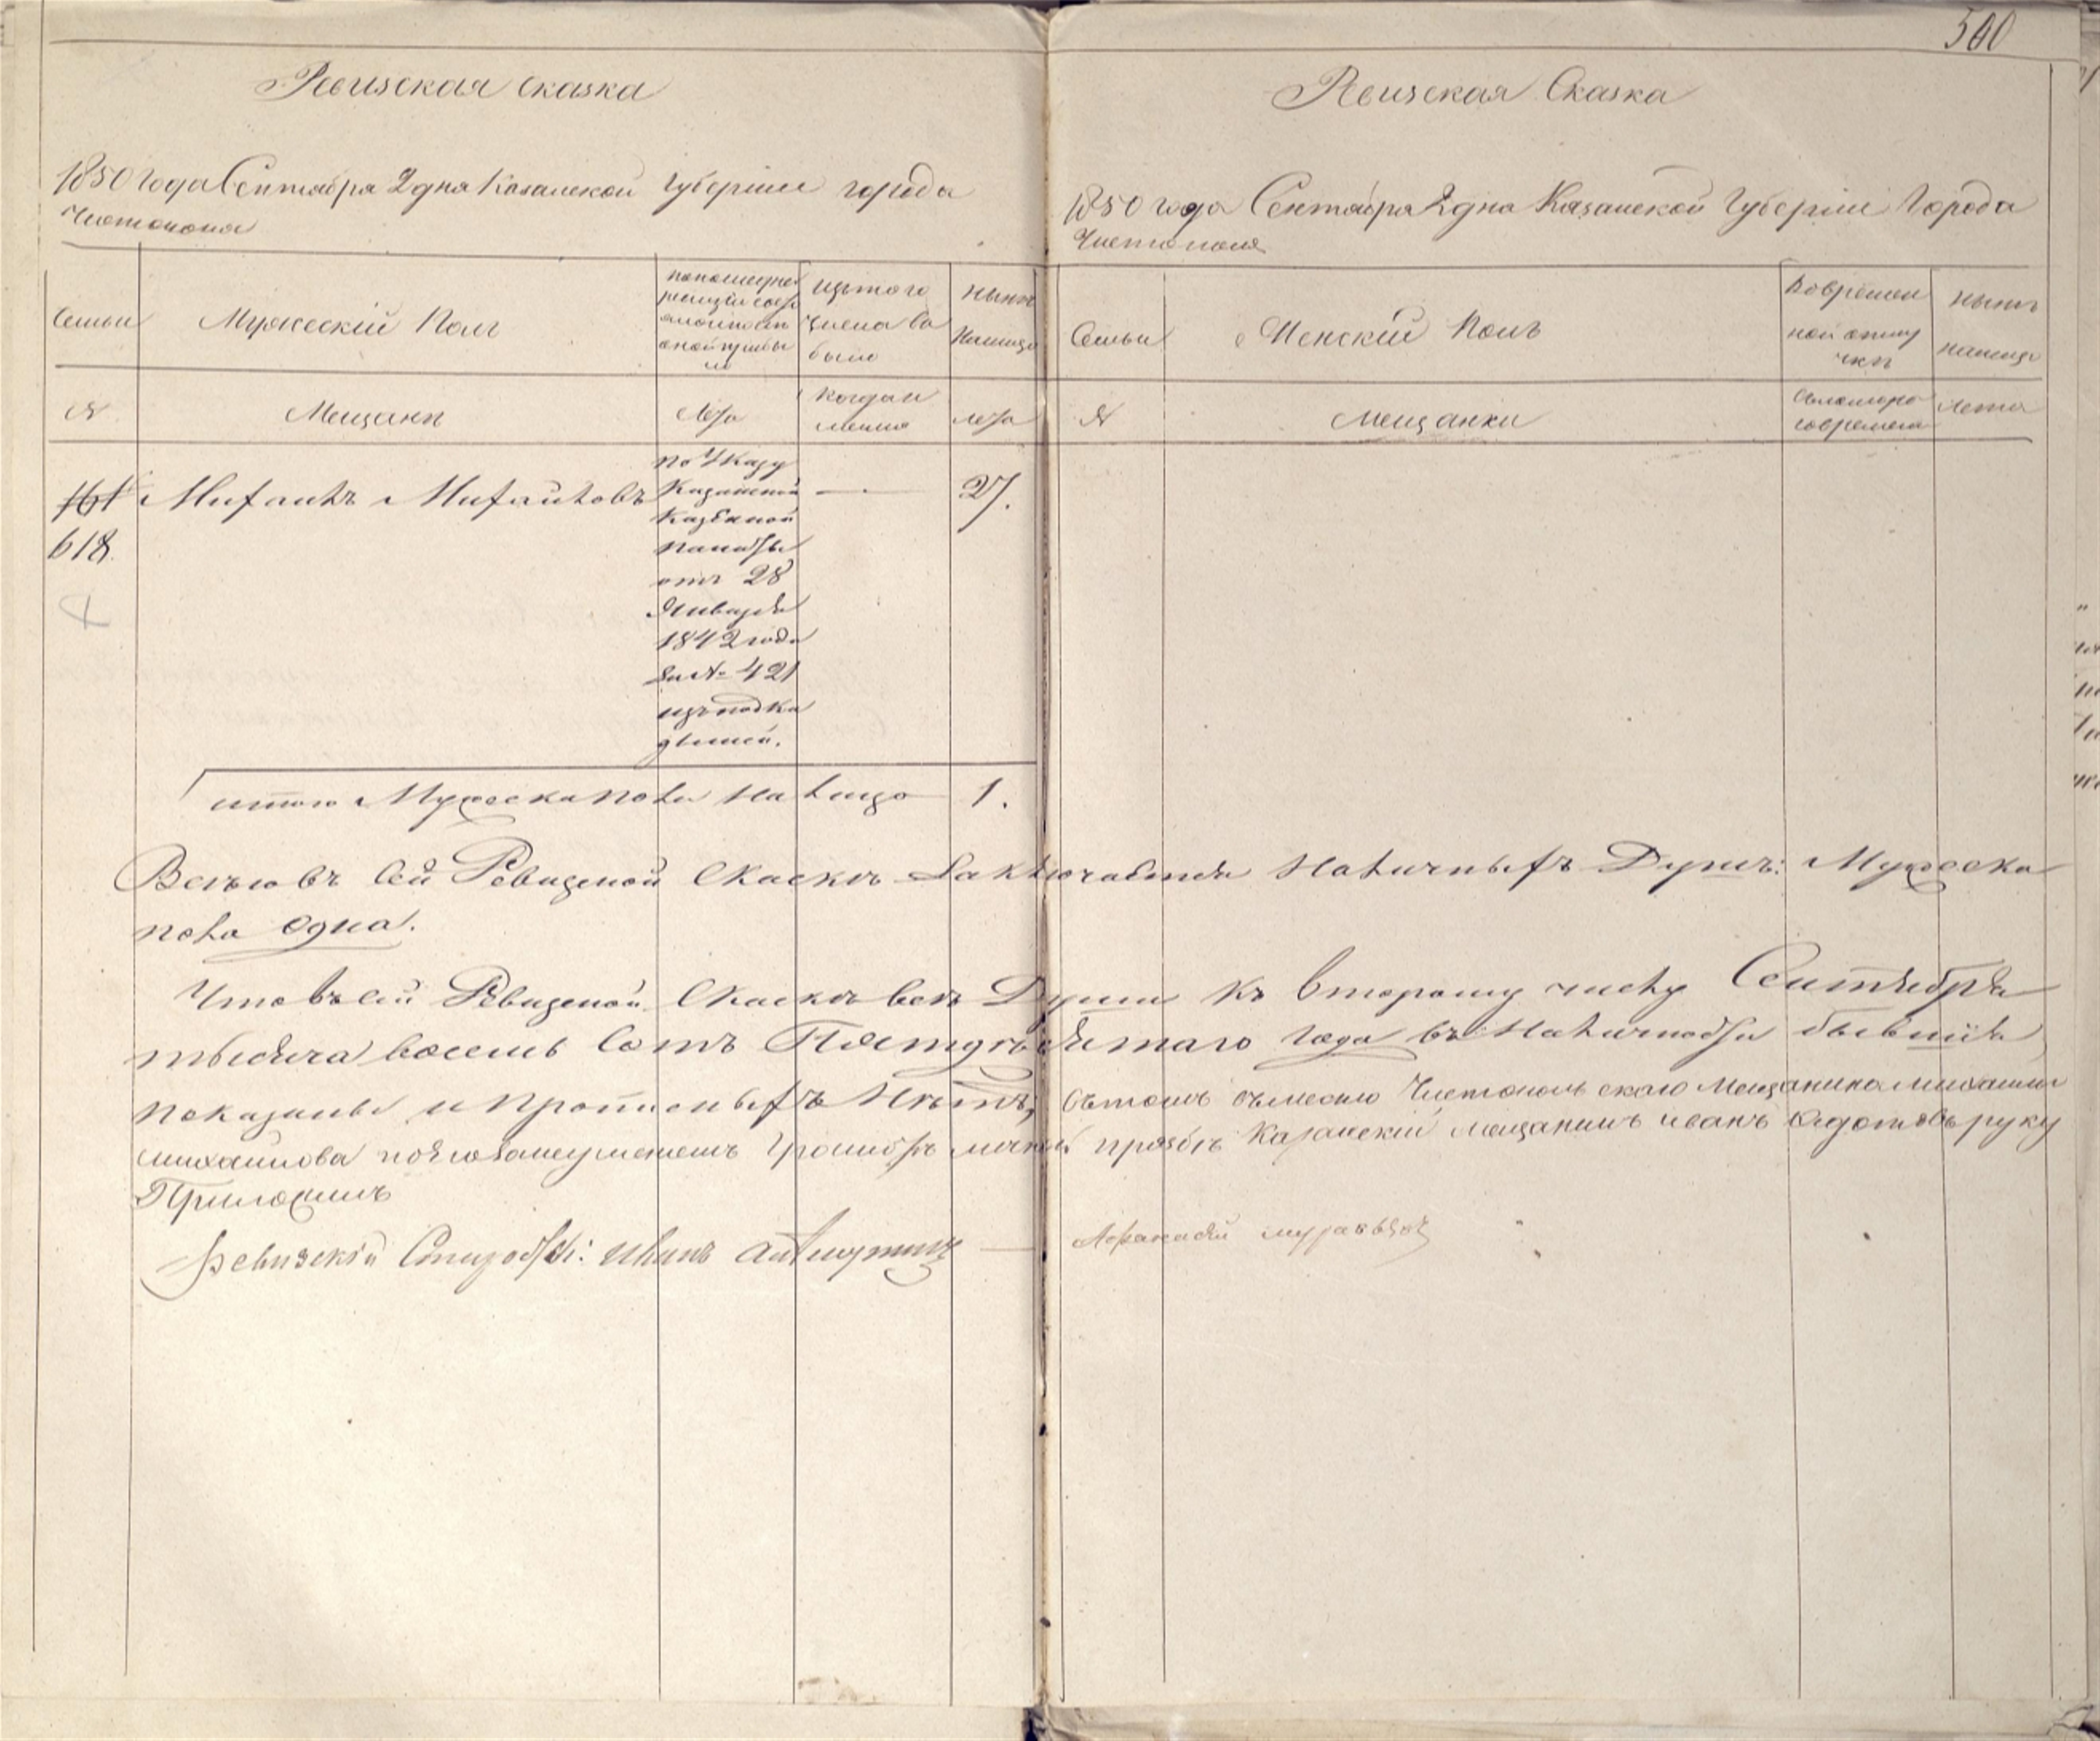 500
Ревизская сказка
1850 года Сентября 2 дня Казанской Губернии города
Чистополя
Семьи
Мужескій Полъ
по последней
ревизіи состояло и после
оной прибыло
изъ того
числа выбыло
Нынѣ
Налицо
№
Мещанѣ
Лета
когда и
Лета
161
618
Михаилъ Михайловъ
по Указу
Казанской
Казенной
палаты
отъ 28
Января
1842 года
за № 421
изъ подки
дышей.
27.
итого Мужеска пола на лицо 1.
Ревизская Сказка
1850 года Сентября 2 дня Казанской Губерніи Города
Чистополя
Семьи
Женскій Полъ
Во времен
ной отлу
чкѣ
Нынѣ
налицо
№
Мещанки
съ котораго
времени
Лета
Всего въ Сей Ревизской Скаскѣ Заключается Наличныхъ Душъ: Мужеска
пола одна.
Что въ сей Ревизской Скаскѣ всѣ Души къ Второму числу Сентября
тысяча восемь Сотъ Пятдесятаго Года въ Наличности бывшія
показаны и прописныхъ Нѣтъ, въ томъ вместо Чистопольскаго Мещанина михаила
михайлова по его неуменію Грамотѣ личной прозбѣ Казанскій мещанинъ иванъ Федотовъ руку
Приложилъ
Иванъ
Афанасій